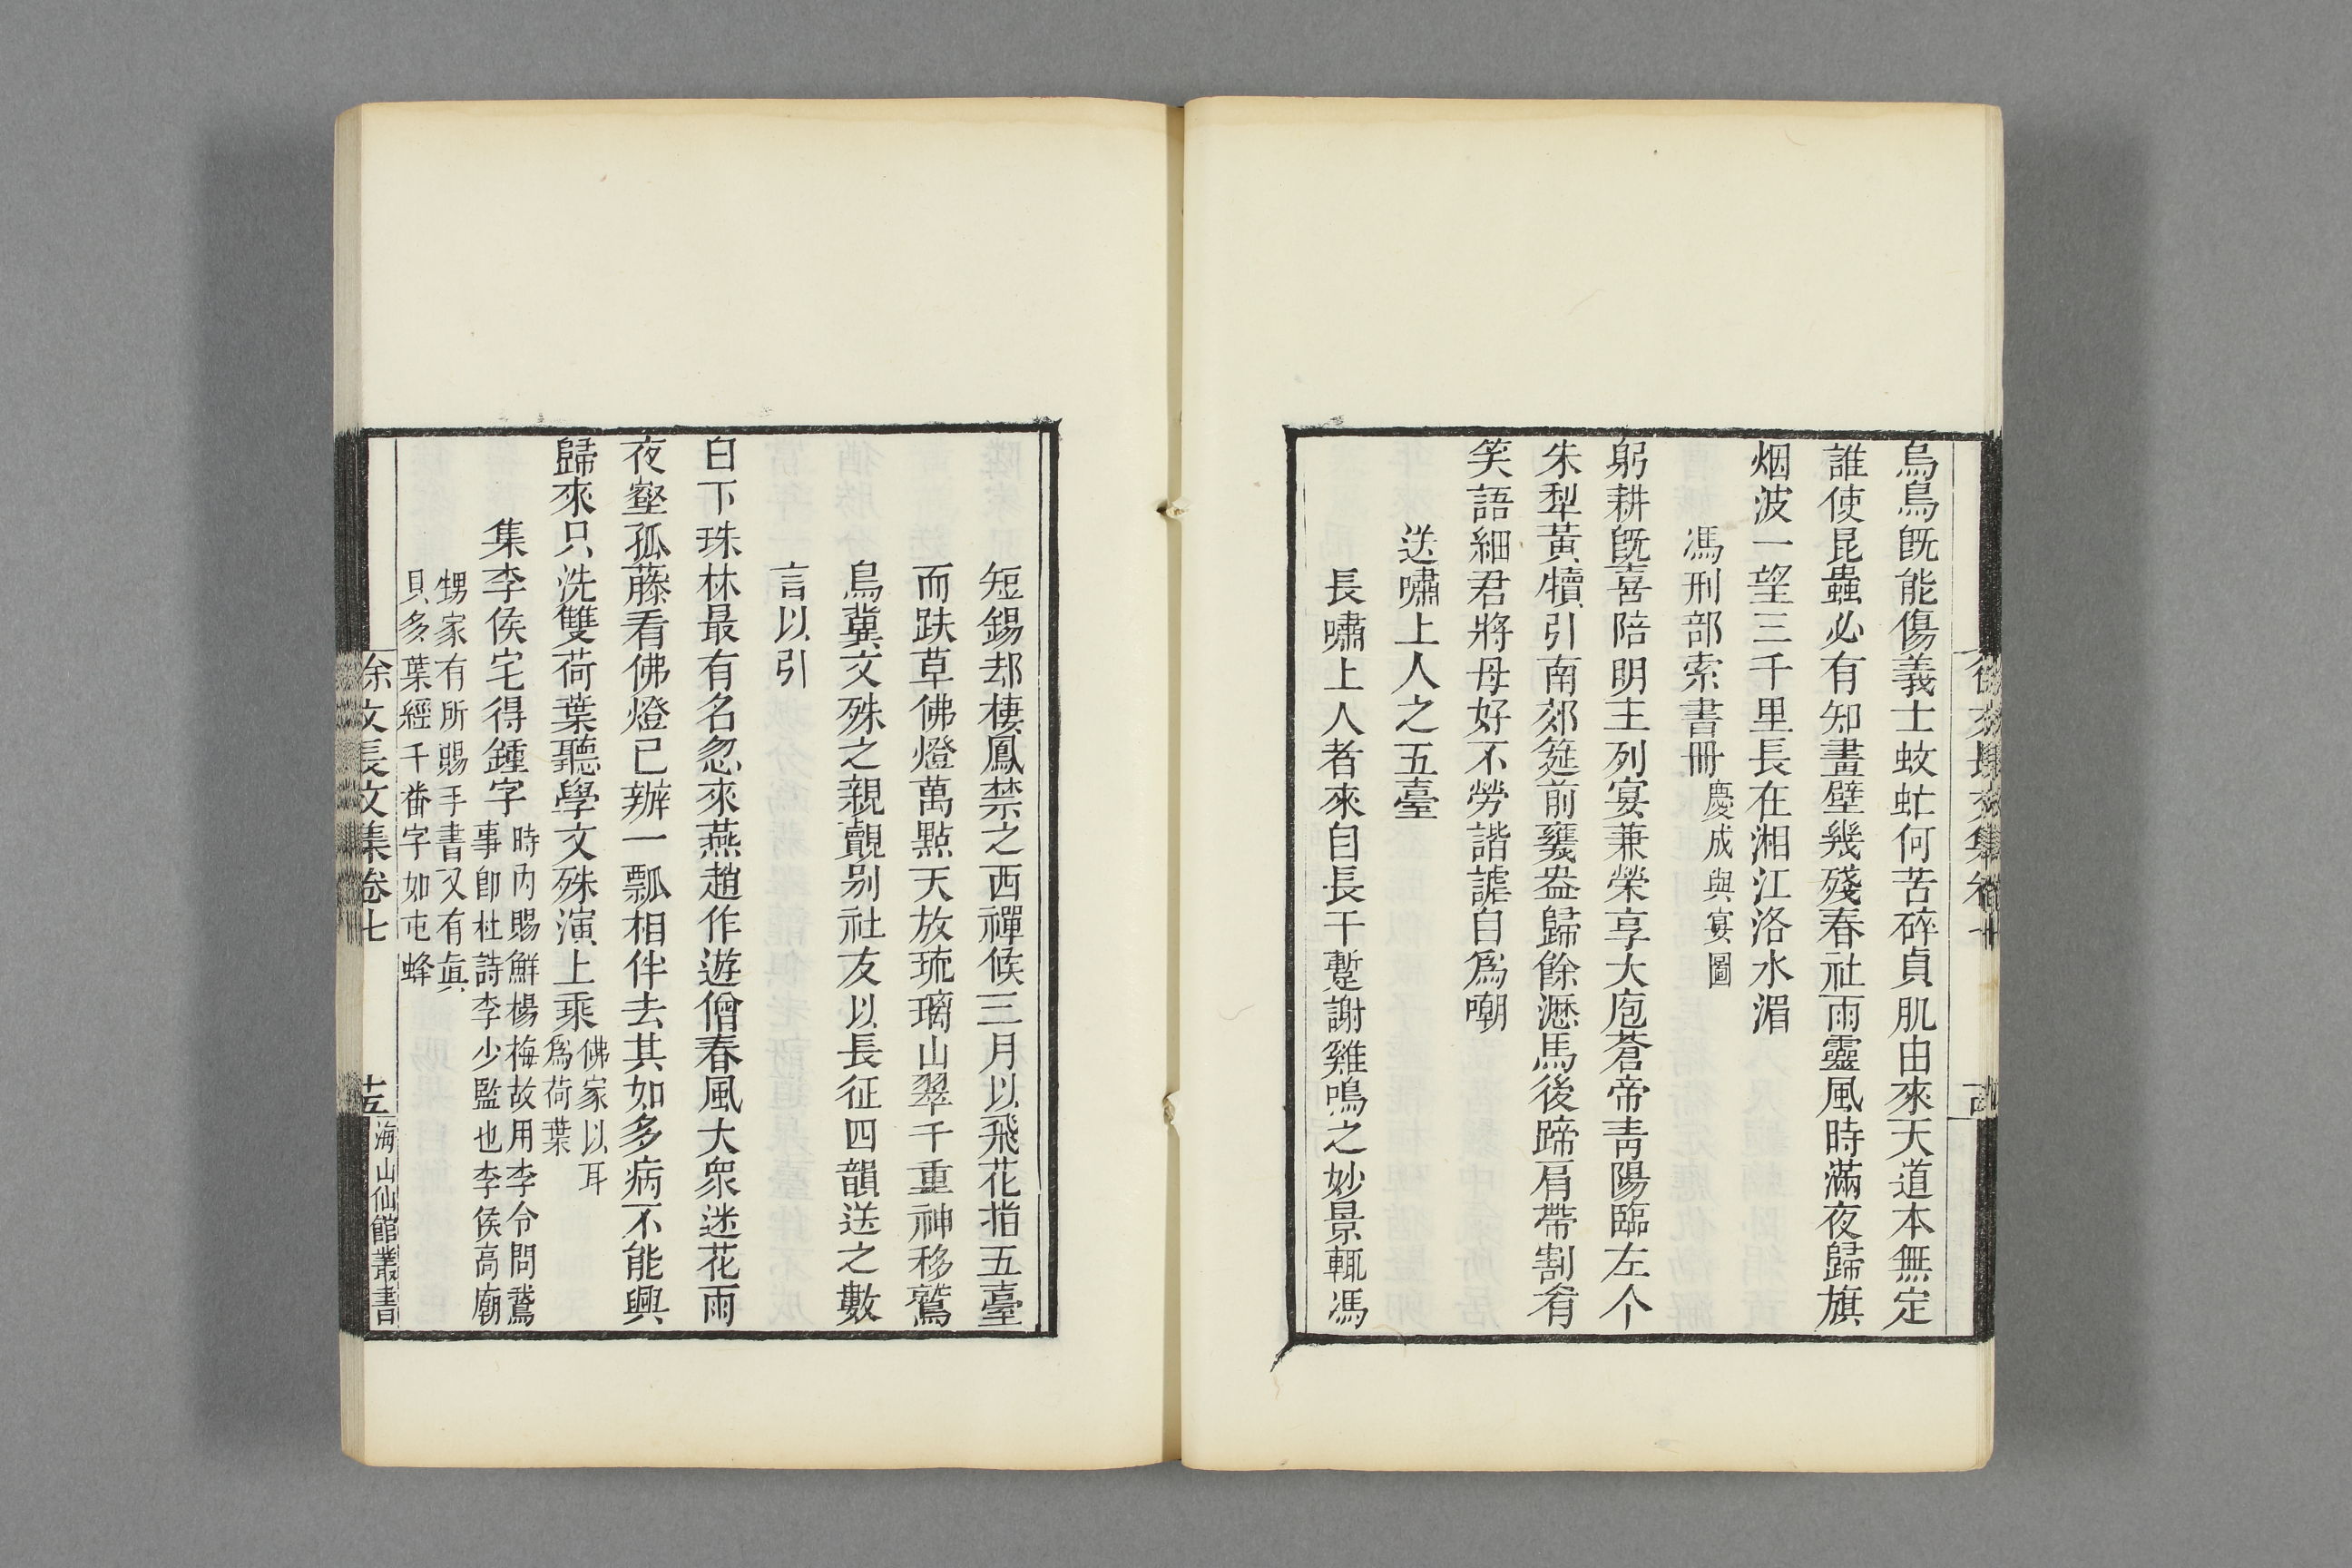 烏鳥旣能傷義士蚊虻何苦碎貞肌由來天道本無定
誰使昆蟲必有知畫壁幾殘春社雨靈風時滿夜歸旗
烟波一望三千里長在湘江洛水湄
馮刑部索書冊慶成與宴圖
躬耕旣喜陪明主列宴兼榮享大庖蒼帝靑陽臨左个
朱犁黃犢引南郊筵前甕盎歸餘瀝馬後蹄肩帶割肴
笑語細君將母好不勞諧謔自爲嘲
送嘯上人之五臺
長嘯上人者來自長干蹔謝雞鳴之妙景輒馮
短錫却棲鳳禁之西禪候三月以飛花指五臺
而趺草佛燈萬點天放琉璃山翠千重神移鷲
鳥冀文殊之親覿别社友以長征四韻送之數
言以引
白下珠林最有名忽來燕趙作遊僧春風大衆迷花雨
夜壑孤藤看佛燈已辦一瓢相伴去其如多病不能興
歸來只洗雙荷葉聽學文殊演上乘佛家以耳
爲荷葉
集李侯宅得鍾字時內賜鮮楊梅故用李令問鵞
事卽杜詩李少監也李侯高廟
甥家有所賜手書又有眞
貝多葉經千番字如屯蜂
徐文長文集卷七
海山仙館叢書